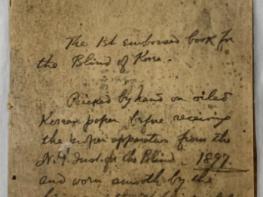 The 1st embossed book for
the Blind of Korea.
Pricked by hand on oiled
Korean paper before receiving
the proper apparatus from the
N.Y. Inst. for the Blind. 1897.
and worn smooth by the